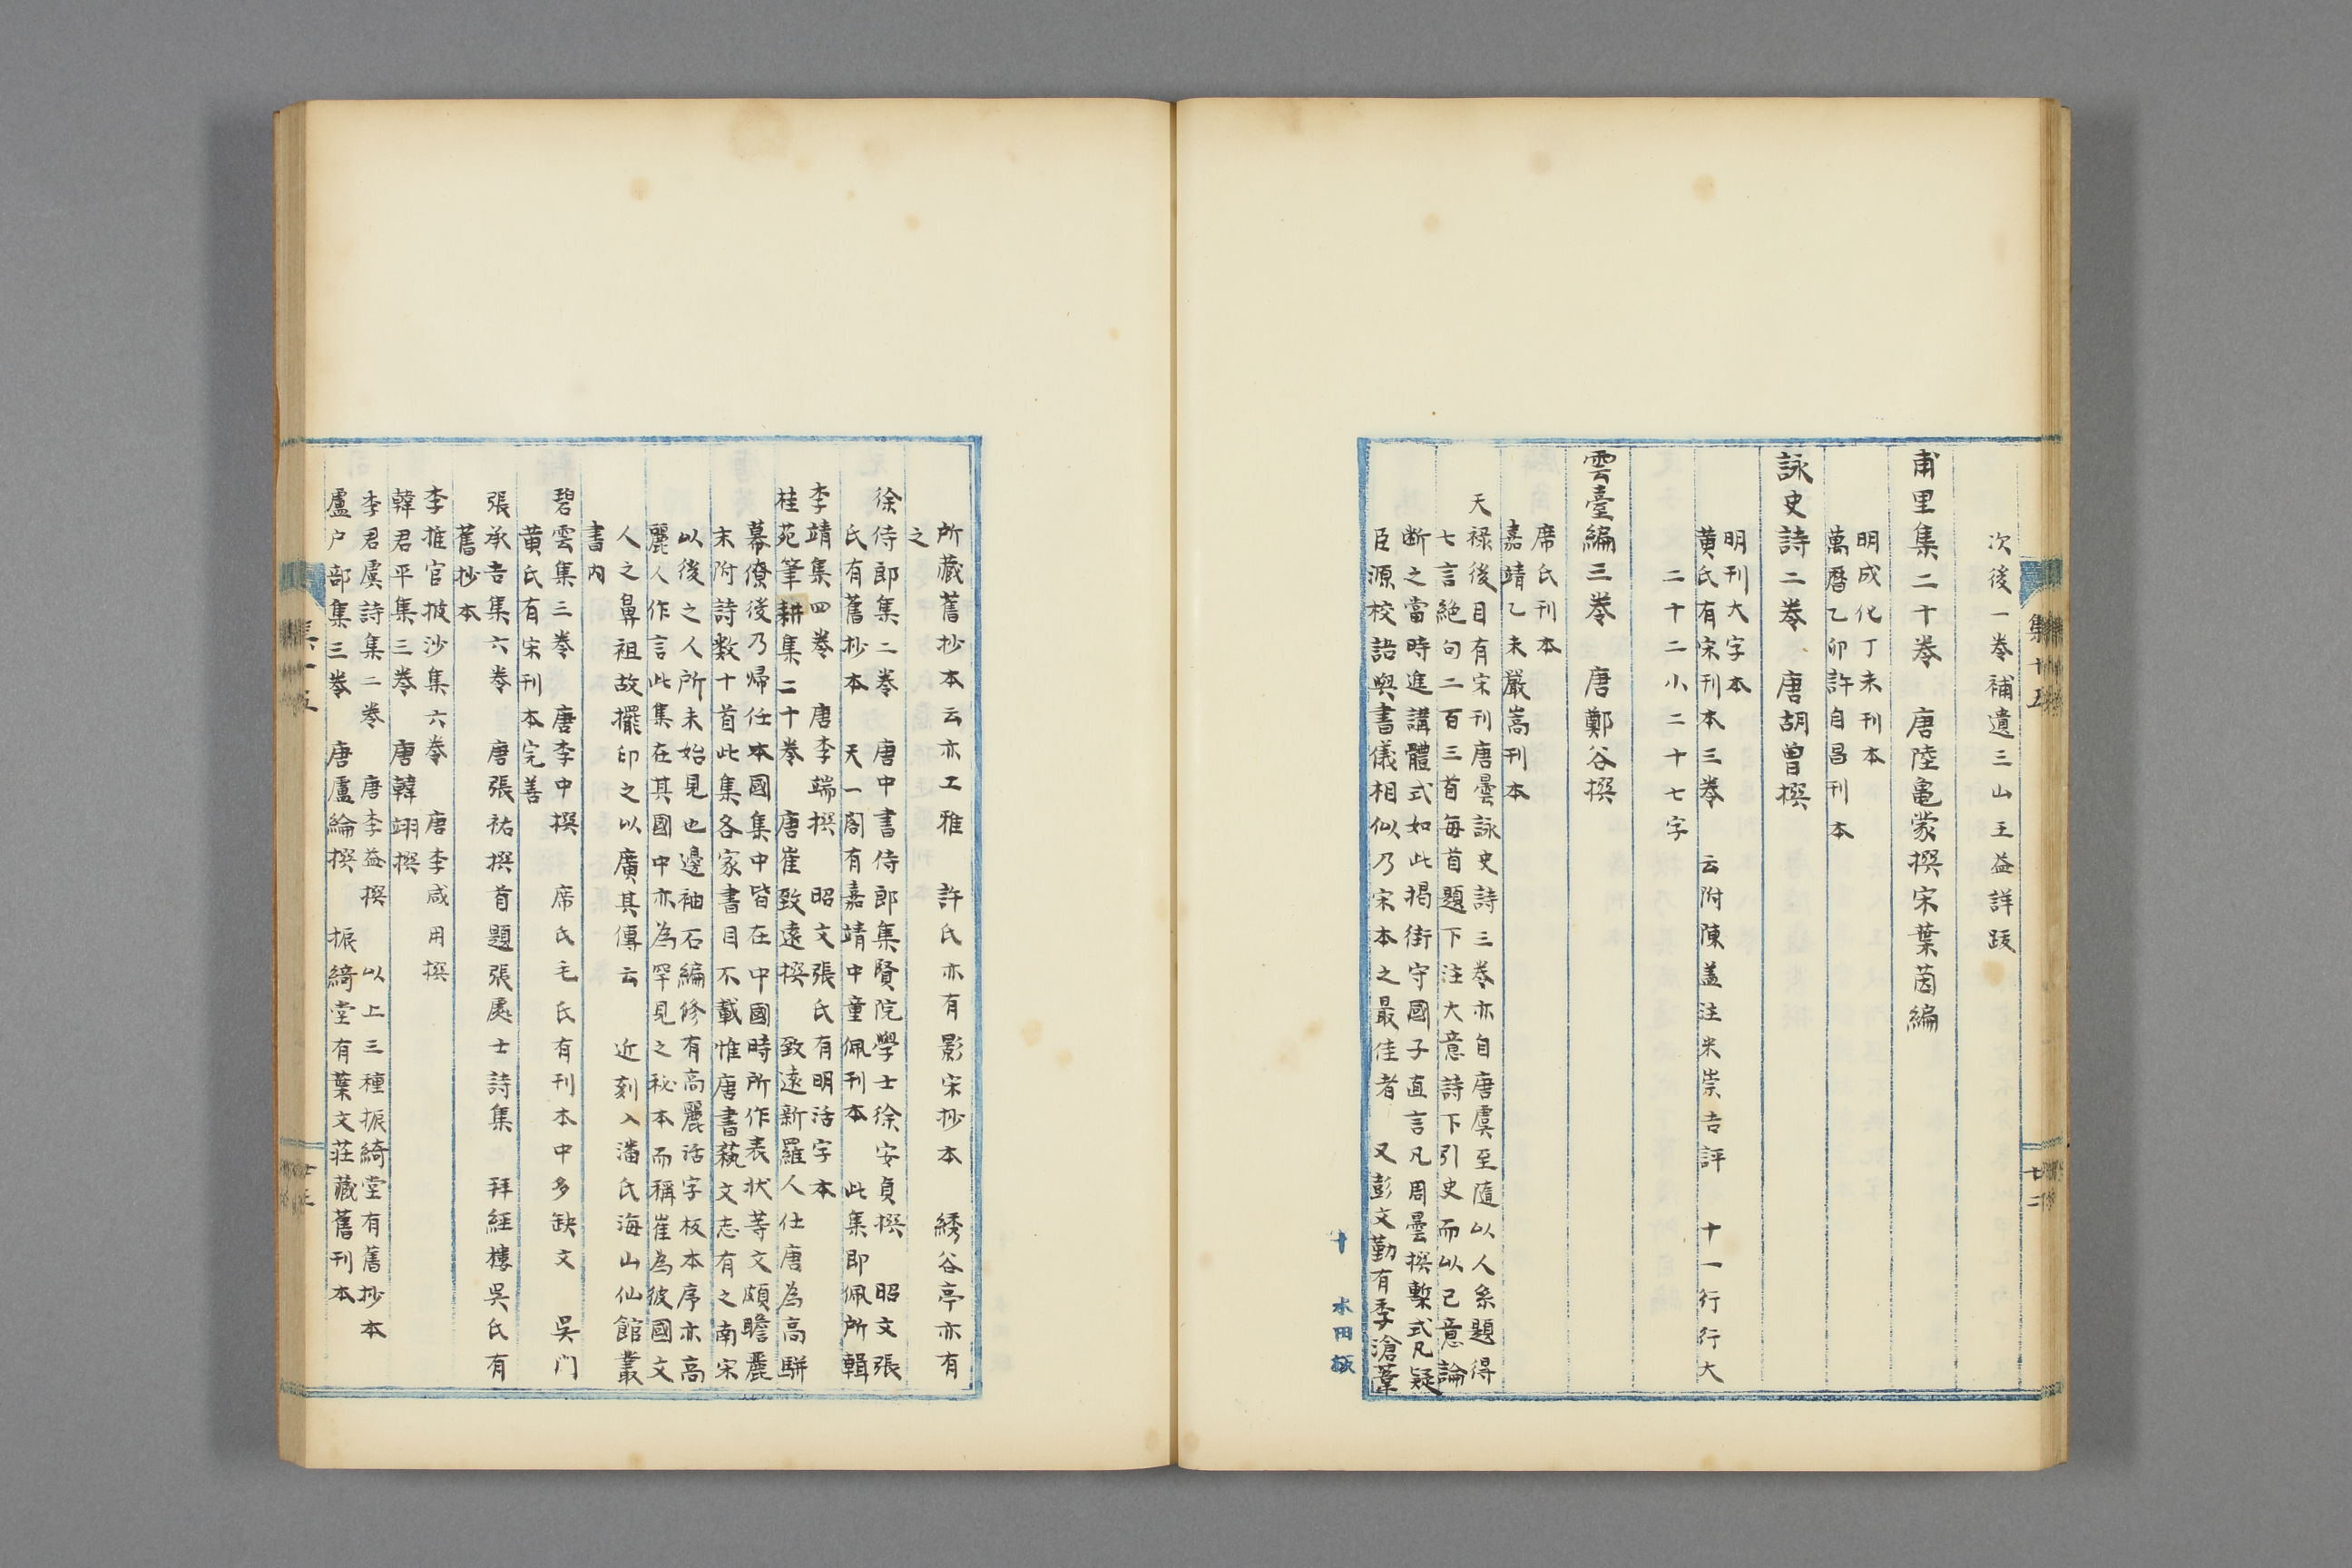 集十五
廿二
次後一巻補遺三山王益詳跋
甫里集二十巻　唐陸龜蒙撰宋葉茵編
明成化丁未刊本
萬曆乙卯許自昌刊本
詠史詩二巻　唐胡曾撰
明刊大字本
黄氏有宋刊本三巻　云附陳盖注米崇吉評　十一行行大
二十二小二十七字
雲臺編三巻　唐鄭谷撰
席氏刊本
嘉靖乙未嚴嵩刊本
天禄後目有宋刊唐曇詠史詩三巻亦自唐虞至隨以人系題得
七言絶句二百三首每首題下注大意詩下引史而以己意論
断之當時進講體式如此揭街守國子直言凡周曇撰槧式凡疑
臣源校語與書儀相似乃宋本之最佳者　又彭文勤有季滄葦
所藏舊抄本云亦工雅　許氏亦有影宋抄本　綉谷亭亦有
之
徐侍郎集二巻　唐中書侍郎集賢院學士徐安貞撰　昭文張
氏有舊抄本　天一閣有嘉靖中童佩刊本　此集即佩所輯
李靖集四巻　唐李端撰　昭文張氏有明活字本
桂苑筆耕集二十巻　唐崔致遠撰　致遠新羅人仕唐為高駢
幕僚後乃帰任本國集中皆在中國時所作表狀等文頗贍麗
末附詩数十首此集各家書目不載惟唐書蓺文志有之南宋
以後之人所未始見也邊袖石編修有高麗活字板本序亦高
麗人作言此集在其國中亦為罕見之秘本而稱崔為彼國文
人之鼻祖故擺印之以廣其傳云　近刻入潘氏海山仙館叢
書内
碧雲集三巻　唐李中撰　席氏毛氏有刊本中多缺文　吳门
黄氏有宋刊本完善
張承吉集六巻　唐張祐撰首題張處士詩集　拜經樓吳氏有
舊抄本
李推官披沙集六巻　唐李咸用撰
韓君平集三巻　唐韓翃撰
李君虞詩集二巻　唐李益撰　以上三種振綺堂有舊抄本
盧户部集三巻　唐盧綸撰　振綺堂有葉文莊藏舊刊本